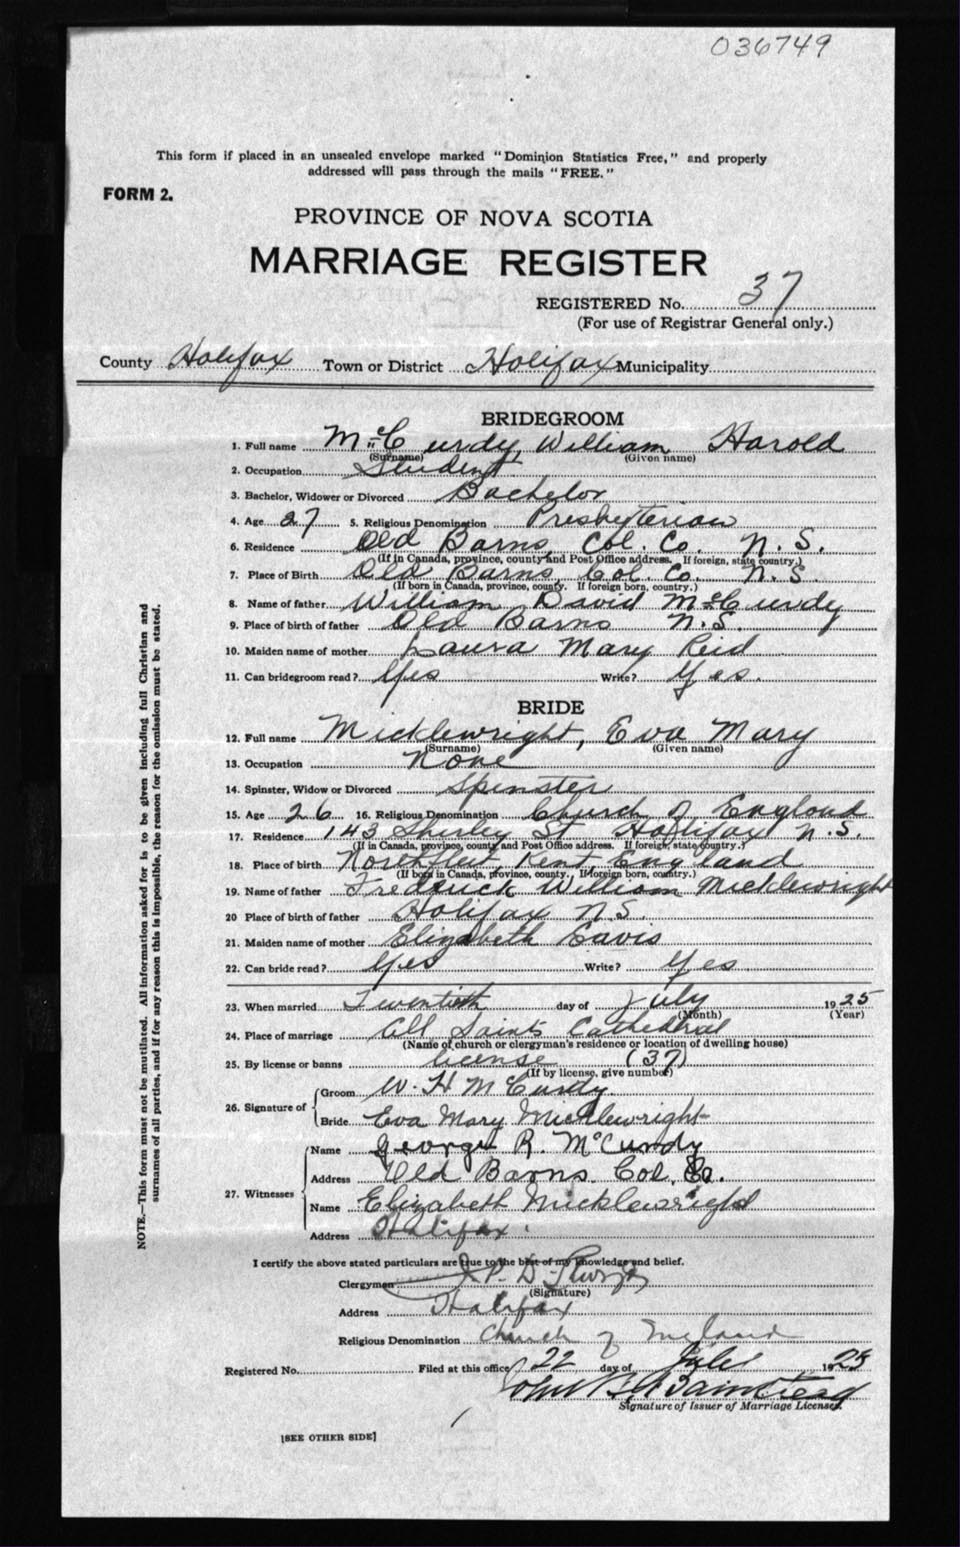 036749
This form if placed in an unsealed envelope marked "Dominion Statistics Free," and properly
addressed will pass through the mails "FREE."
FORM 2.
PROVINCE OF NOVA SCOTIA
MARRIAGE REGISTER
REGISTERED No. 37
(For use of Registrar General only.)
County Halifax Town or District Halifax Municipality
BRIDEGROOM
1. Full name McCurdy, William Harold
(Surname) (Given name)
2. Occupation Student
3. Bachelor, Widower or Divorced Bachelor
4. Age 27 5. Religious Denomination Presbyterian
6. Residence Old Barns, Col. Co. N.S.
(If in Canada, province, county and Post Office address. If foreign, state country.)
7. Place of Birth Old Barns, Col. Co. N.S.
(If born in Canada, province, county. If foreign born, country.)
8. Name of father William David McCurdy
9. Place of birth of father Old Barns N.S.
10. Maiden name of mother Laura Mary Reid
11. Can bridegroom read? Yes Write? Yes.
BRIDE
12. Full name Micklewright, Eva Mary
(Surname) (Given name)
13. Occupation None
14. Spinster, Widow or Divorced Spinster
15. Age 26 16. Religious Denomination Church of England
17. Residence 143 Shirley St Halifax N.S.
(If in Canada, province, county and Post Office address. If foreign, state country.)
18. Place of birth Northfleet, Kent, England
(If born in Canada, province, county., If foreign born, country.)
19. Name of father Fredrick William Micklewright
20 Place of birth of father Halifax N.S.
21. Maiden name of mother Elizabeth Eavis
22. Can bride read? Yes Write? Yes
23. When married Twentieth day of July 1925
(Month) (Year)
24. Place of marriage All Saints Cathedral
(Name of church or clergyman's residence or location of dwelling house)
25. By license or banns license (37)
(If by license, give number)
26. Signature of Groom W. H McCurdy
Bride Eva Mary Micklewright
27. Witnesses Name George R. McCurdy
Address Old Barns Col. Co.
Name Elizabeth Micklewright
Address Halifax.
I certify the above stated particulars are true to the best of my knowledge and belief.
Clergyman
(Signature)
Address Halifax
Religious Denomination Church of England
Registered No. Filed at this office 22 day of July 1925
Signature of Issuer of Marriage Licenses.
[SEE OTHER SIDE]
NOTE.—This form must not be mutilated. All information asked for is to be given including full Christian and
surnames of all parties, and if for any reason this is impossible, the reason for the omission must be stated.